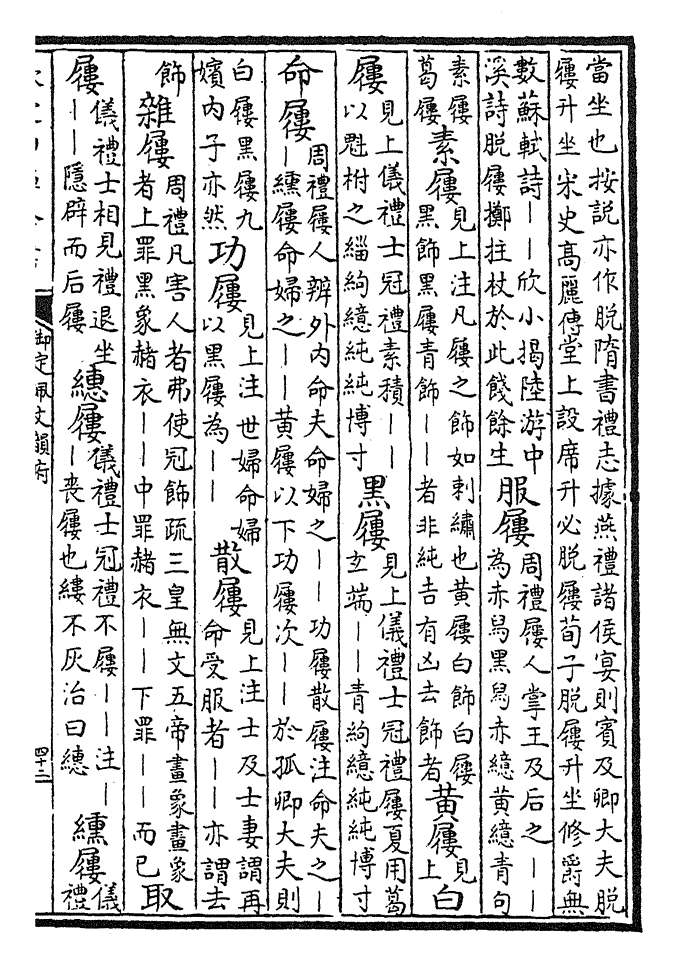 當坐也按說亦作脫隋書禮志據燕禮諸侯宴則賓及卿大夫脫
屨升坐宋史高麗傳堂上設席升必脫屨荀子脫屨升坐修爵無
數蘇軾詩——欣小揭陸游中
溪詩脫屨擲拄杖於此餞餘生
服屨
周禮屨人掌王及后之——
為赤舄黑舄赤繶黃繶青句
素屨
葛屨
素屨
見上注凡屨之飾如刺繡也黃屨白飾白屨
黑飾黑屨青飾——者非純吉有凶去飾者
黃屨
見
上
白
屨
見上儀禮士冠禮素積——
以魁柎之緇絇繶純純博寸
黑屨
見上儀禮士冠禮屨夏用葛
玄端——青絇繶純純博寸
命屨
周禮屨人辨外內命夫命婦之——功屨散屨注命夫之—
—纁屨命婦之——黃屨以下功屨次——於孤卿大夫則
白屨黑屨九
嬪內子亦然
功屨
見上注世婦命婦
以黑屨為——
散屨
見上注士及士妻謂再
命受服者——亦謂去
飾
雜屨
周禮凡害人者弗使冠飾疏三皇無文五帝畫象畫象
者上罪黑象赭衣——中罪赭衣——下罪——而已
取
屨
儀禮士相見禮退坐
——隱辟而后屨
繐屨
儀禮士冠禮不屨——注—
—喪屨也縷不灰治曰繐
纁屨
儀
禮
御定佩文韻府
四十二